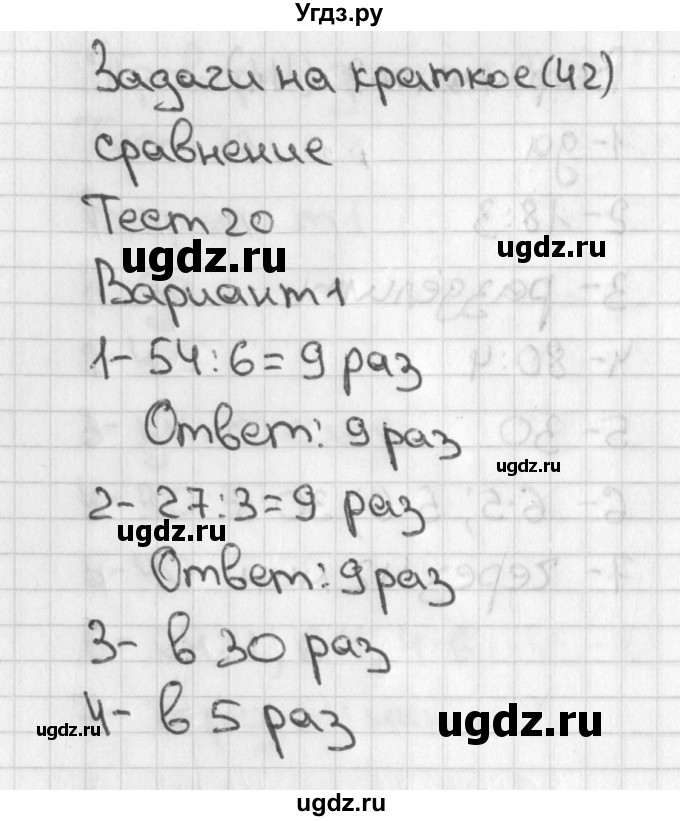 Угдз.ру
Задачи на краткое (42)
сравнение
Тест 20
ugdz.ru
ugdz.ru
Вариант 1
1- 54:6= 9 раз
Ответ: 9 раз
ugdz.ru
2- 27:3=9 раз
ugdz.ru
Ответ: 9 раз
3- в 30 раз
4- в 5 раз
ugdz.ru
ugdz.ru
ugdz.ru